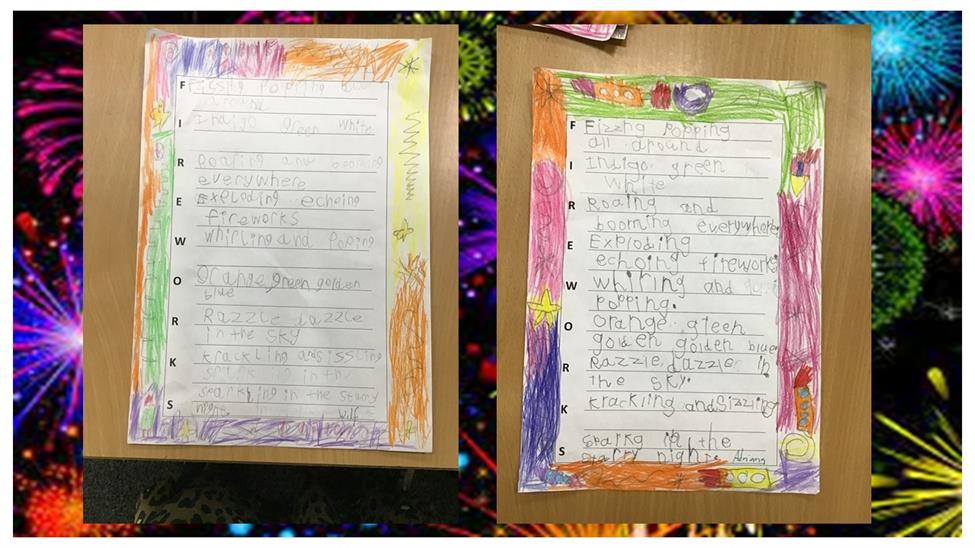 F
I
R
E
W
O
R
K
S
around
Indigo green white
Roaring and booming
everywhere
Exploding echoing
fireworks
whirling and Poping
Orange green golden
blue
Razzle dazzle
in the sky
krackling and sissling
in the
in the
F
I
R
E
W
O
R
K
S
Fizzng Popping
all around
Indigo green
White
Roaing and
booming everywhere
Exploding
echoing fireworks
whiring and
Popping.
orange green
golden golden blue
Razzle dazzle in
the sky.
krackling and Sizzling
in the